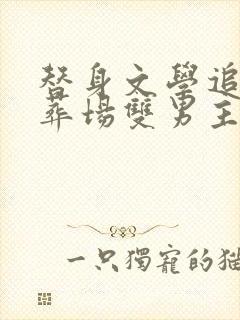 替身文學追
葬場雙男主
一只獨寵的貓